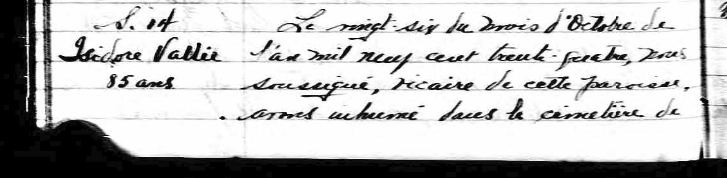 S. 14
Isidore Vallée
85 ans
Le vingt-six du mois d'Octobre de
l'an mil neuf cent trente-quatre, nous
soussigné, vicaire de cette paroisse,
avons inhumé dans le cimetière de